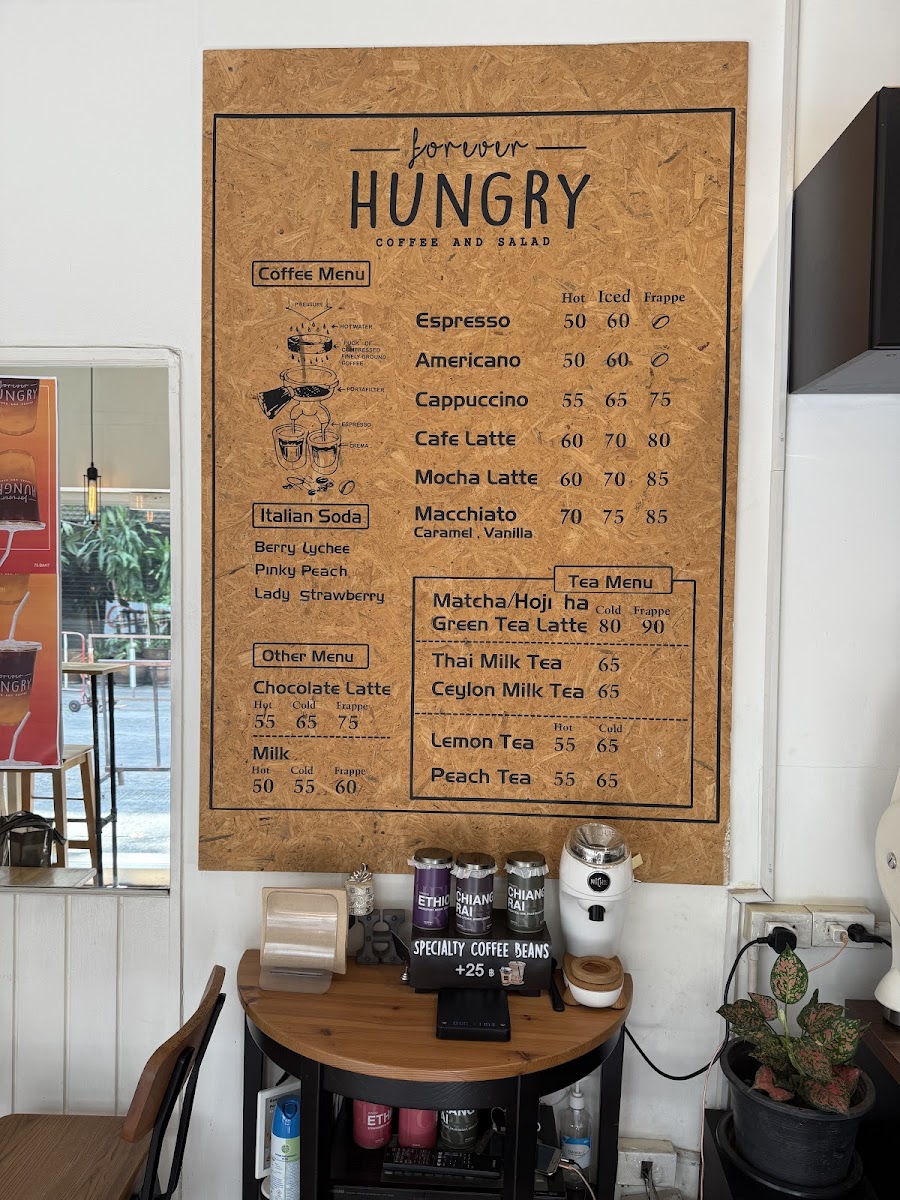 forever
HUNGRY
COFFEE AND SALAD
Coffee Menu
PRESSURE
HOTWATER
PUCK OF
COMPRESSED
FINELY GROUND
COFFEE
PORTAFILTER
ESPRESSO
CREMA
Hot Iced Frappe
Espresso 50 60
Americano 50 60
Cappuccino 55 65 75
Cafe Latte 60 70 80
Mocha Latte 60 70 85
Macchiato 70 75 85
Caramel , Vanilla
Italian Soda
Berry Lychee
Pinky Peach
Lady Strawberry
Other Menu
Chocolate Latte
Hot Cold Frappe
55 65 75
Milk
Hot Cold Frappe
50 55 60
Tea Menu
Matcha/Hoji ha Cold Frappe
Green Tea Latte 80 90
Thai Milk Tea 65
Ceylon Milk Tea 65
Hot Cold
Lemon Tea 55 65
Peach Tea 55 65
forever
UNGRY
HUNGR
forever
forever
NGRY
ETHIO
CHIANG
RAI
CHIANG
RAI
SPECIALTY COFFEE BEANS
+25 ฿
ETH